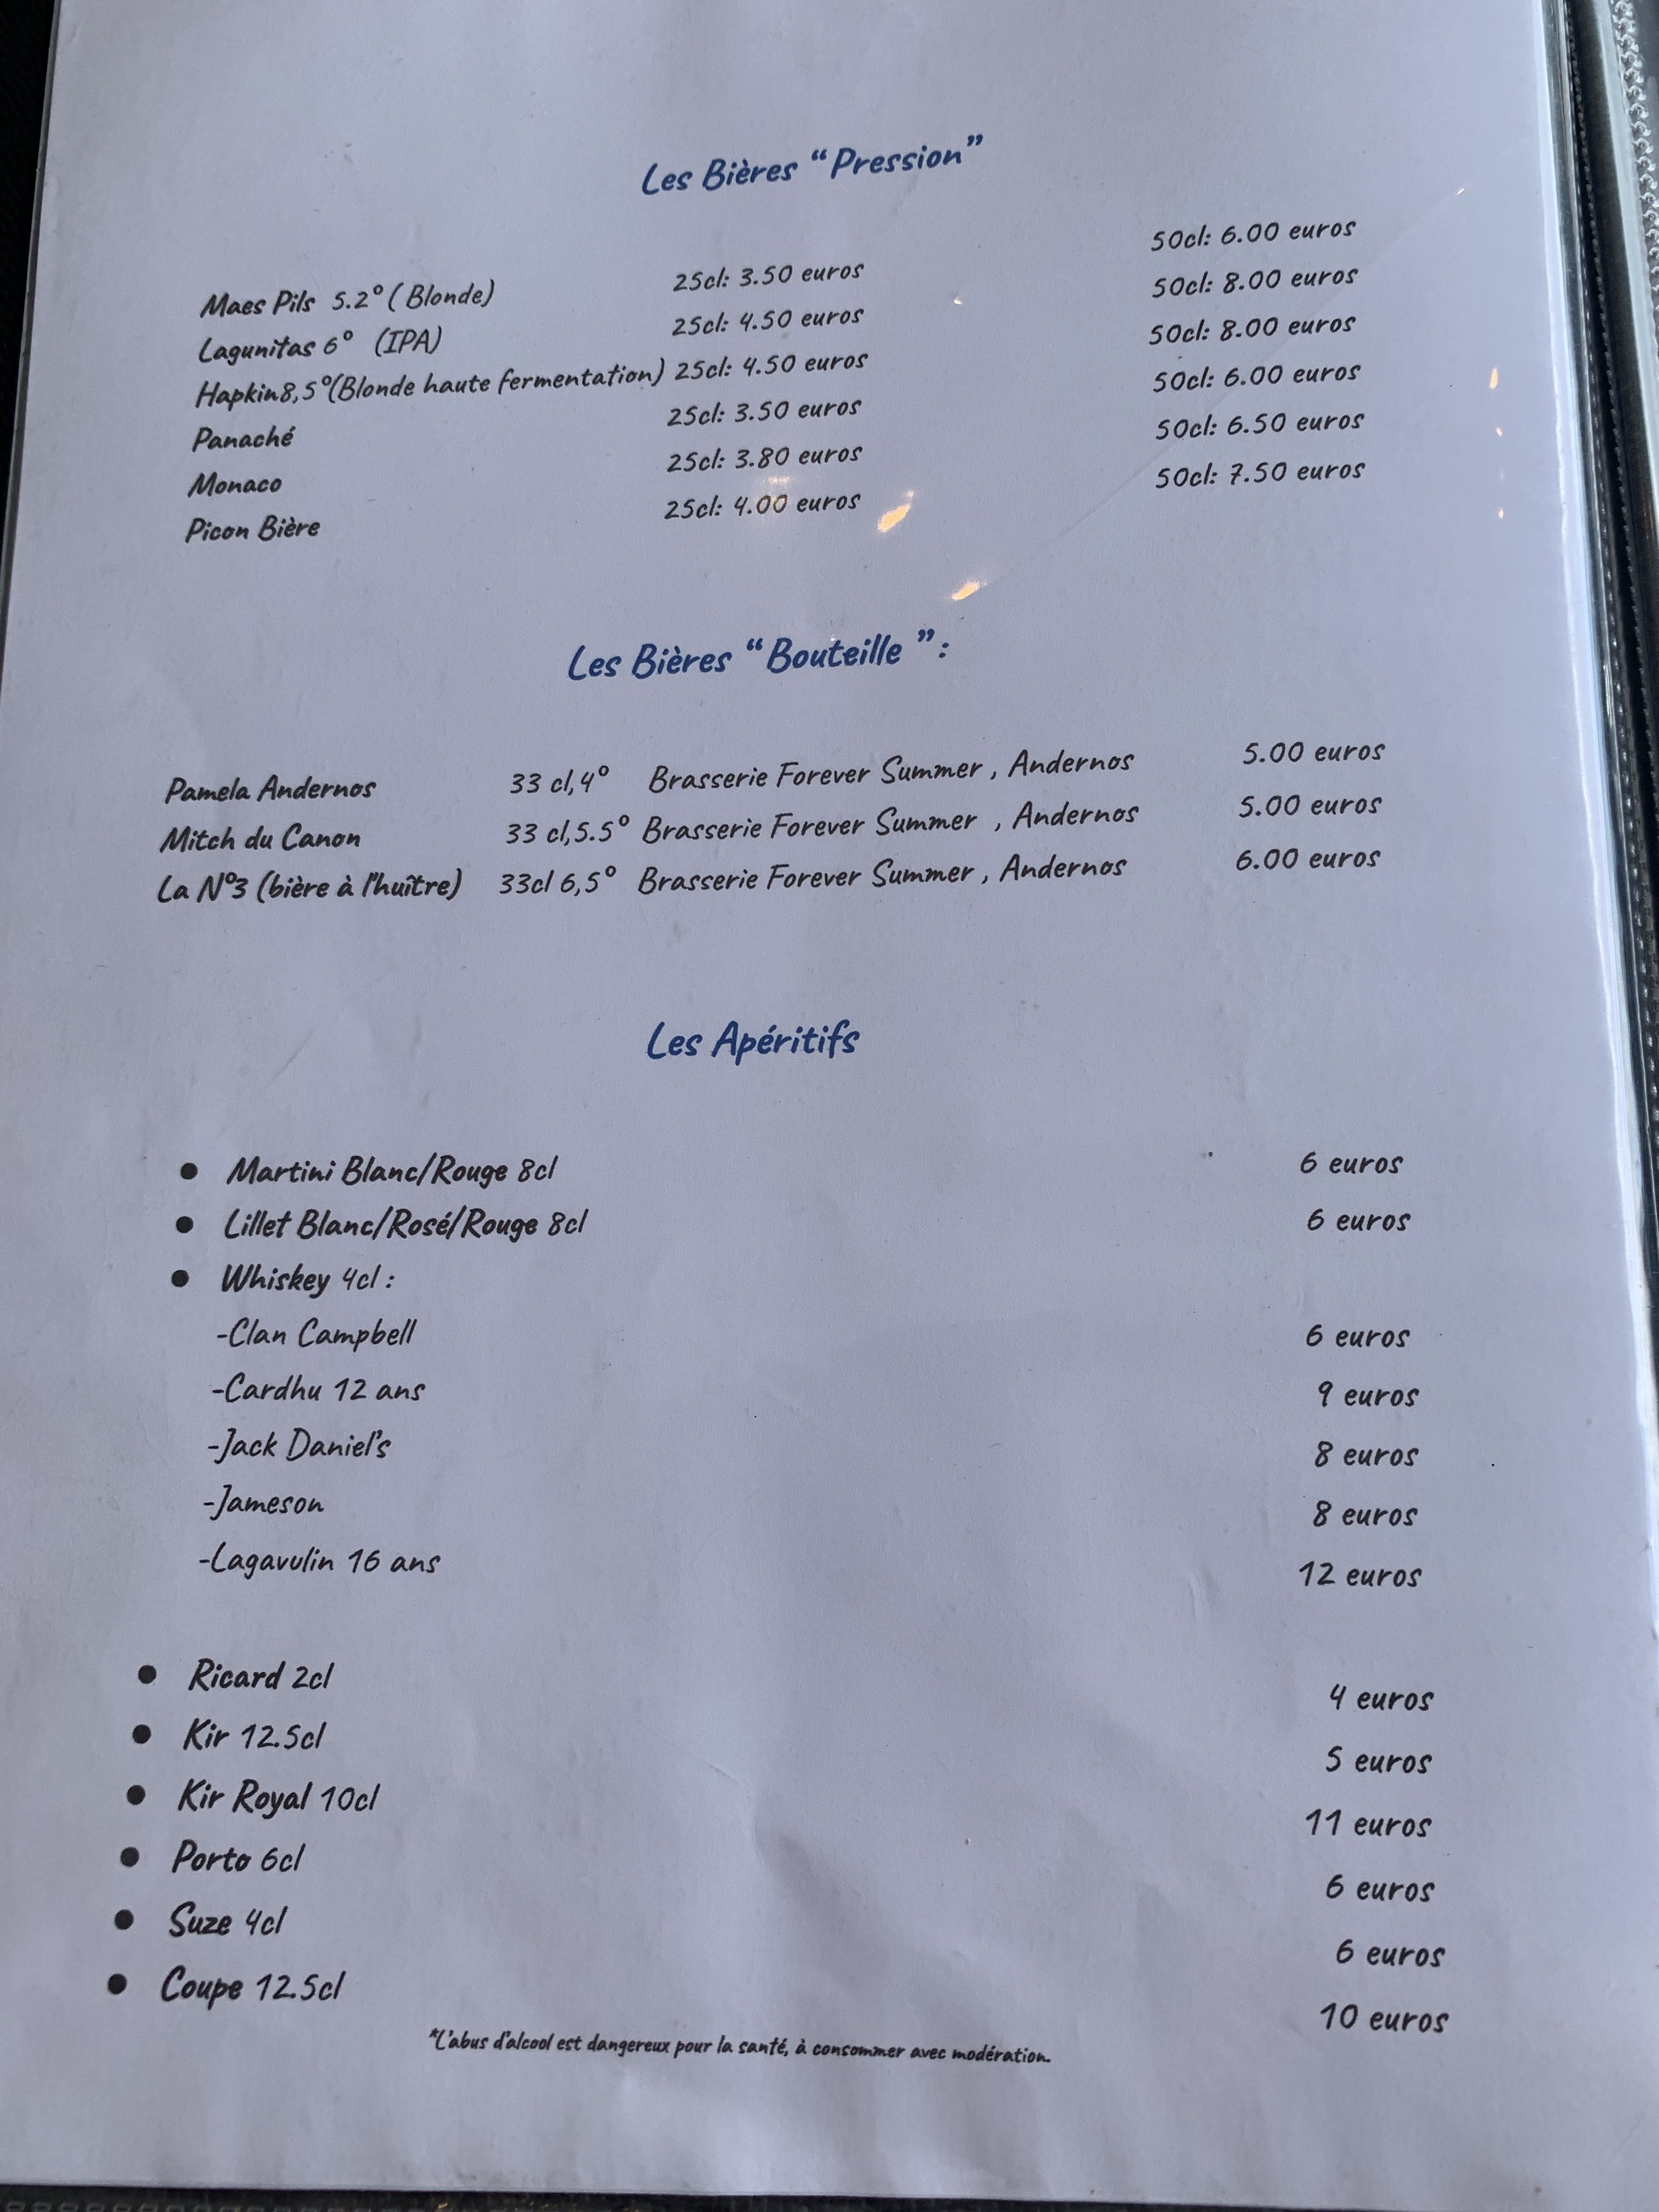 Les Bières “Pression”
Maes Pils 5.2° ( Blonde) 25cl: 3.50 euros 50cl: 6.00 euros
Lagunitas 6° (IPA) 25cl: 4.50 euros 50cl: 8.00 euros
Hapkin8,5°(Blonde haute fermentation) 25cl: 4.50 euros 50cl: 8.00 euros
Panaché 25cl: 3.50 euros 50cl: 6.00 euros
Monaco 25cl: 3.80 euros 50cl: 6.50 euros
Picon Bière 25cl: 4.00 euros 50cl: 7.50 euros
Les Bières “Bouteille ” :
Pamela Andernos 33 cl,4° Brasserie Forever Summer , Andernos 5.00 euros
Mitch du Canon 33 cl,5.5° Brasserie Forever Summer , Andernos 5.00 euros
La N°3 (bière à l'huître) 33cl 6,5° Brasserie Forever Summer , Andernos 6.00 euros
Les Apéritifs
● Martini Blanc/Rouge 8cl 6 euros
● Lillet Blanc/Rosé/Rouge 8cl 6 euros
● Whiskey 4cl :
-Clan Campbell 6 euros
-Cardhu 12 ans 9 euros
-Jack Daniel's 8 euros
-Jameson 8 euros
-Lagavulin 16 ans 12 euros
● Ricard 2cl 4 euros
● Kir 12.5cl 5 euros
● Kir Royal 10cl 11 euros
● Porto 6cl 6 euros
● Suze 4cl 6 euros
● Coupe 12.5cl 10 euros
*L'abus d'alcool est dangereux pour la santé, à consommer avec modération.